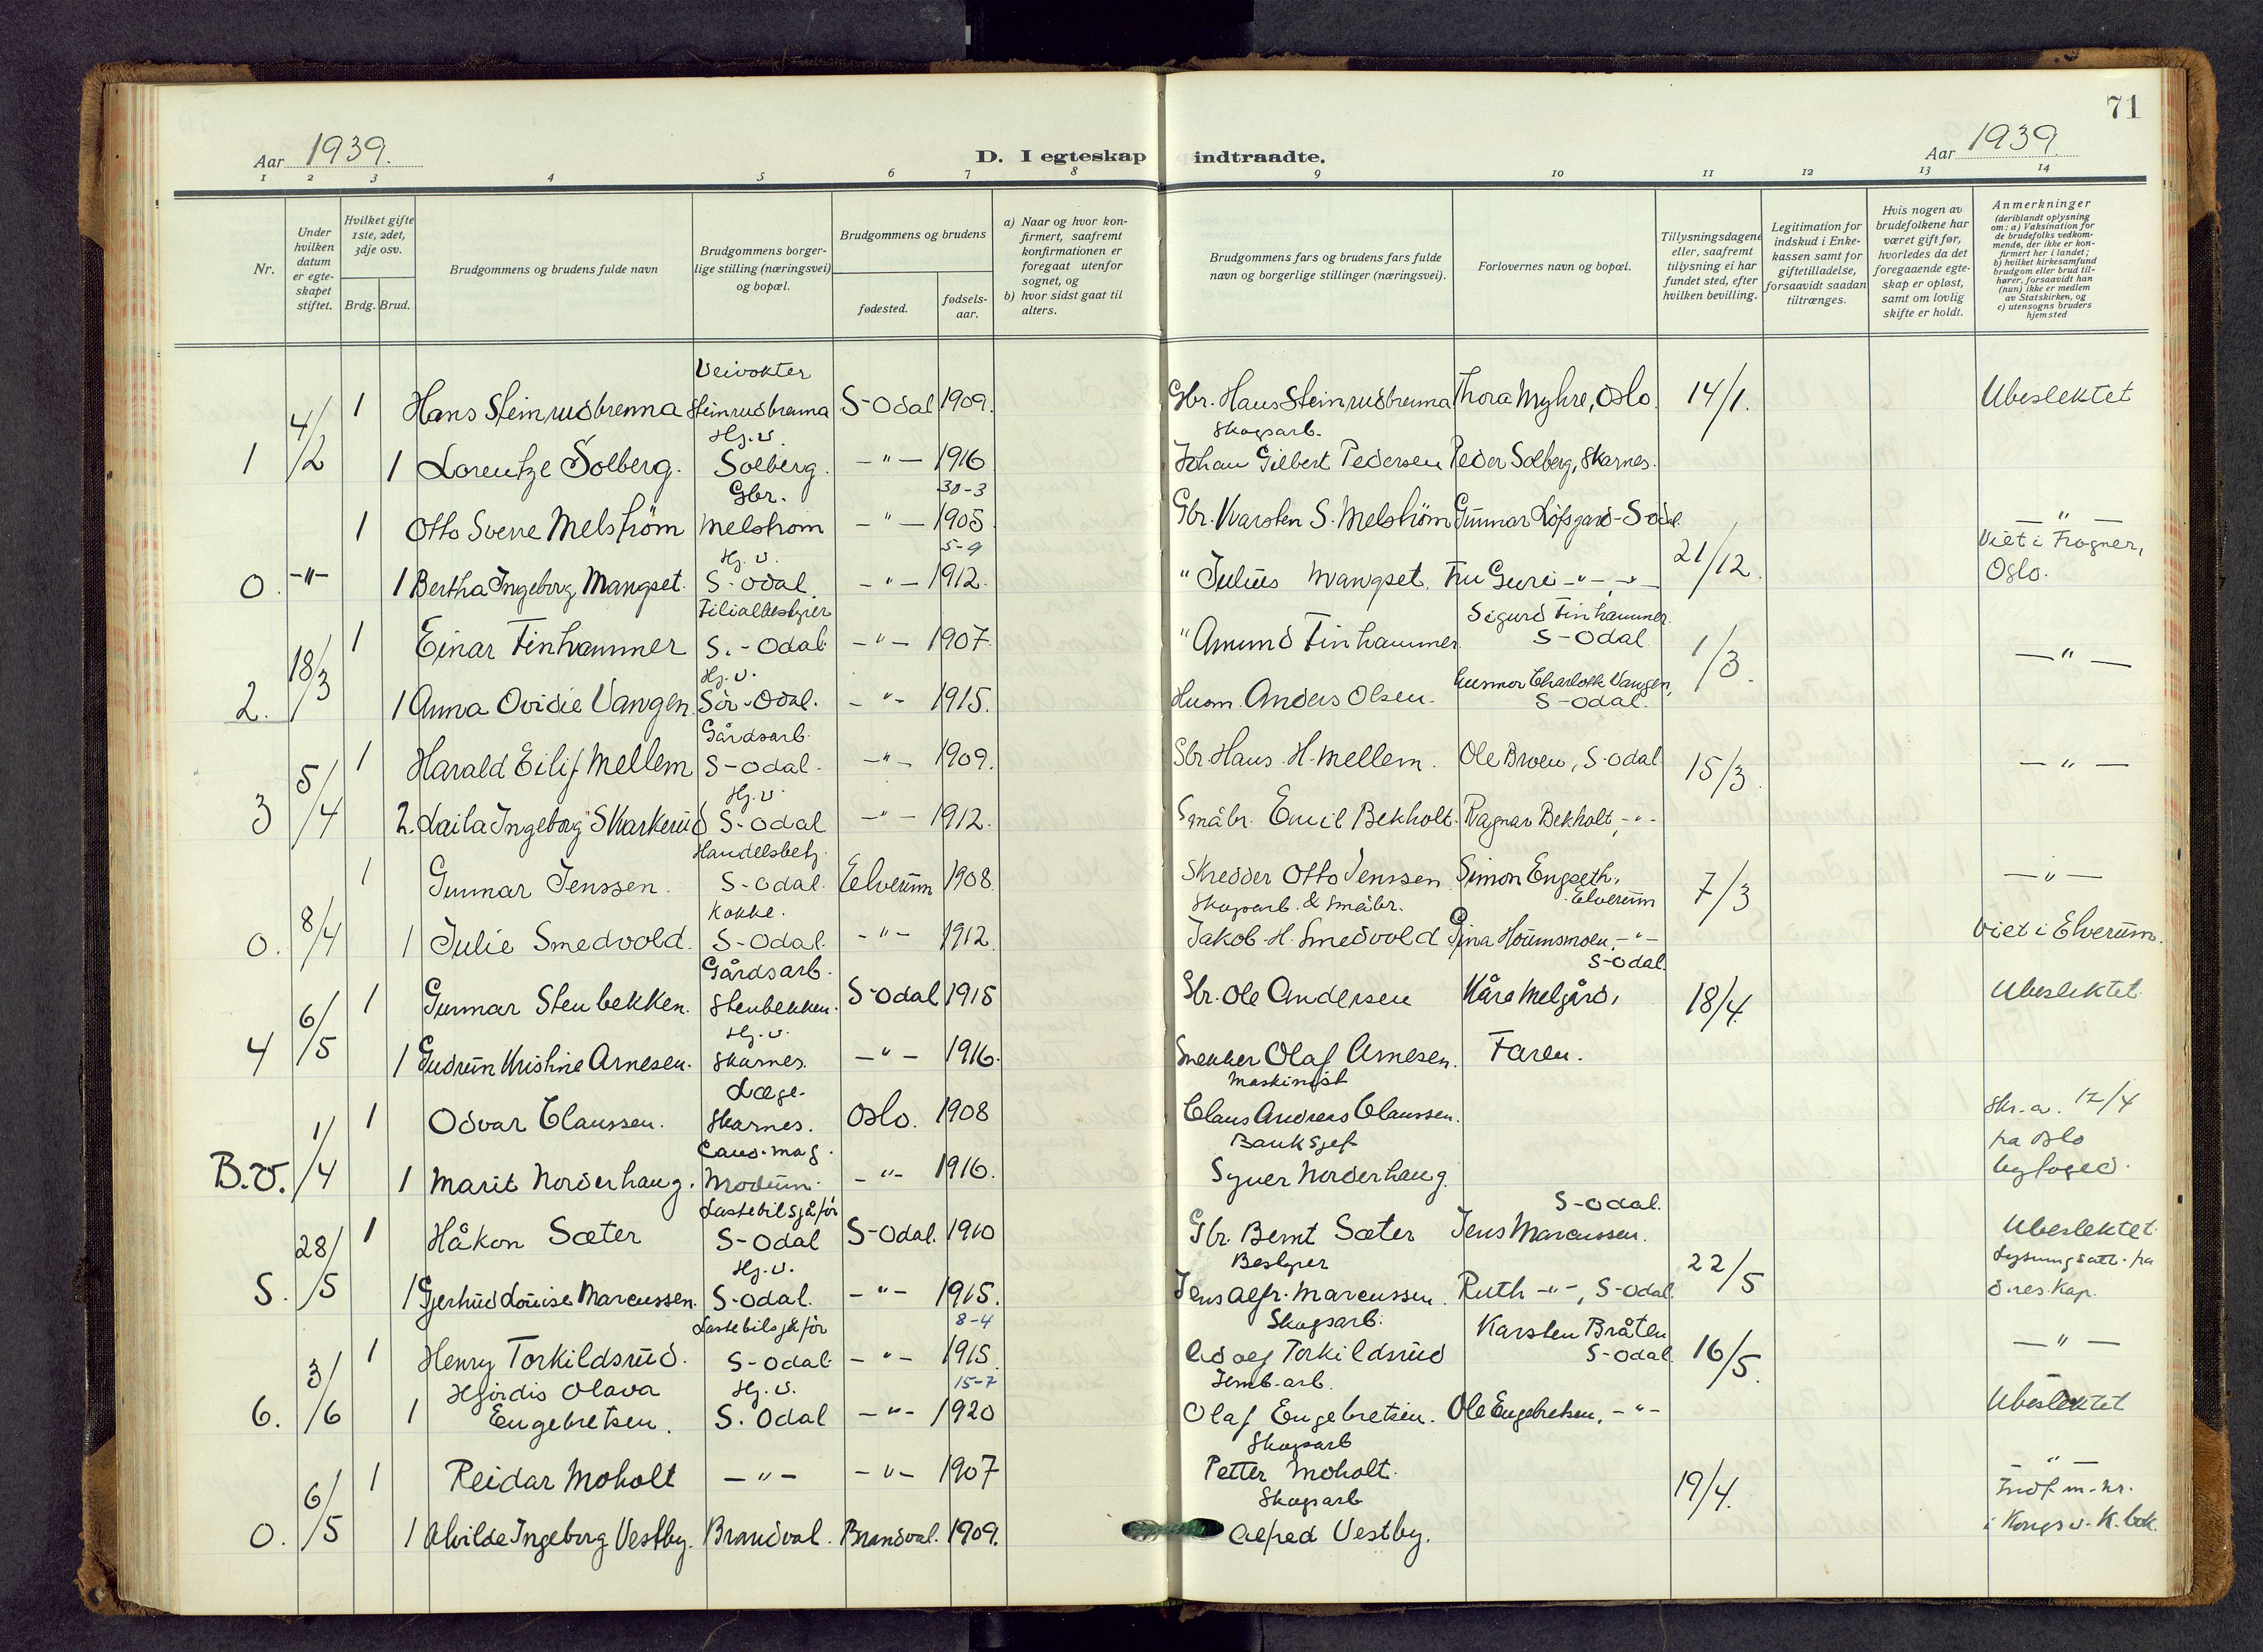 71
Aar 1939.
D. I egteskap indtraadte.
Aar 1939.
1 2 3 4 5 6 7 8 9 10 11 12 13 14
Nr.
Under hvilken datum er egteskapet stiftet.
Hvilket gifte 1ste, 2det, 3dje osv.
Brdg. Brud.
Brudgommens og brudens fulde navn
Brudgommens borgerlige stilling (næringsvei) og bopæl.
Brudgommens og brudens
fødested.
fødselsaar.
a) Naar og hvor konfirmert, saafremt konfirmationen er foregaat utenfor sognet, og
b) hvor sidst gaat til alters.
Brudgommens fars og brudens fars fulde navn og borgerlige stillinger (næringsvei).
Forlovernes navn og bopæl.
Tillysningsdagene eller, saafremt tillysning ei har fundet sted, efter hvilken bevilling.
Legitimation for indskud i Enkekassen samt for giftetilladelse, forsaavidt saadan tiltrænges.
Hvis nogen av brudefolkene har været gift før, hvorledes da det foregaaende egteskap er opløst, samt om lovlig skifte er holdt.
Anmerkninger (deriblandt oplysning om: a) Vaksination for de brudefolks vedkommende, der ikke er konfirmert her i landet; b) hvilket kirkesamfund brudgom eller brud tilhører, forsaavidt han (hun) ikke er medlem av Statskirken, og c) utensogns bruders hjemsted
Veivokter
4/2 1 Hans Steinrudbrenna Steinrudbrenna S-Odal 1909. Gbr. Hans Steinrudbrenna Thora Myhre, Oslo. 14/1. Ubeslektet
Hj.v. Skogsarb.
1 1 Lorentze Solberg. Solberg. -"- 1916 Johan Gilbert Pedersen Peder Solberg, Skarnes.
Gbr. 30-3
1 Otto Sverre Melström Melstrom -"- 1905 Gbr. Karsten S. Melström Gunnar Löfsgard - S-Odal. -"-
Hj.v. 5-9 Viet i Frogner,
0. -"- 1 Bertha Ingeborg Mangset. S-Odal. -"- 1912. " Julius Mangset. Fru Guri -"-, -"- 21/12. Oslo.
Filialbestyrer Sigurd Finhammer.
18/3 1 Einar Finhammer S.-Odal. -"- 1907. " Amund Finhammer. S-Odal. 1/3. -"-
Hj.v. Gusmor Charlotte Vangen,
2. 1 Anna Ovidie Vangen. Sör-Odal. -"- 1915. Husm. Anders Olsen. S-Odal.
Gårdsarb.
5/4 1 Harald Eilif Mellem S-Odal. -"- 1909. Gbr. Hans H. Mellem. Ole Broen, S-Odal. 15/3. -"-
Hj.v.
3 2. Laila Ingeborg Skarkerud S-Odal -"- 1912. Småbr. Emil Bekholt. Ragnar Bekholt, -"-
Handelsbetj.
8/4 1 Gunnar Jenssen. S-Odal. Elverum 1908. Skredder Otto Jenssen Simon Engseth, Elverum 7/3 -"-
Kokke. Skogsarb. & Småbr.
0. 1 Julie Smedvold. S-Odal. -"- 1912. Jakob H. Smedvold Gina Houmsmoen, -"- Viet i Elverum.
Gårdsarb. S-Odal.
6/5 1 Gunnar Stenbekken. Stenbekken. S-Odal 1915 Gbr. Ole Andersen Kåre Melgård, 18/4. Ubeslektet.
Hj.v.
4 1 Gudrun Kristine Arnesen. Skarnes. -"- 1916. Snekker Olaf Arnesen. Faren.
Læge. Maskinist
1/4 1 Odvar Claussen. Skarnes. Oslo. 1908 Claus Andreas Claussen. Skr. a. 12/4
Cand. mag. Banksjef fra Oslo
B.v. 1 Marit Norderhaug. Modum. -"- 1916. Syver Norderhaug. byfoged.
Lastebilsjåför S-Odal.
28/5 1 Håkon Sæter S-Odal S-Odal. 1910 Gbr. Bernt Sæter Jens Marcussen. Ubeslektet.
Hj.v. Bestyrer Lysningsatt. fra
5. 1 Gjertrud Louise Marcussen. S-Odal. -"- 1915. Jens Alfr. Marcussen. Ruth -"-, S-Odal. 22/5 d. res. Kap.
Lastebilsjåför 8-4 Skogsarb. Karsten Bråten
3/6 1 Henry Torkildsrud. S-Odal. -"- 1915. Adolf Torkildsrud S-Odal. 16/5. -"-
Hjördis Olava Hj.v. 15-7 Jernb.arb.
6. 1 Engebretsen. S. Odal -"- 1920 Olaf Engebretsen. Ole Engebretsen, -"- Ubeslektet
Skogsarb
6/5 1 Reidar Moholt -"- -"- 1907 Petter Moholt. 19/4. -"-
Skogsarb Indf. m. nr.
0. 1 Alvilde Ingeborg Vestby. Brandval. Brandval. 1909. Alfred Vestby. i Kongsv. K.bok.